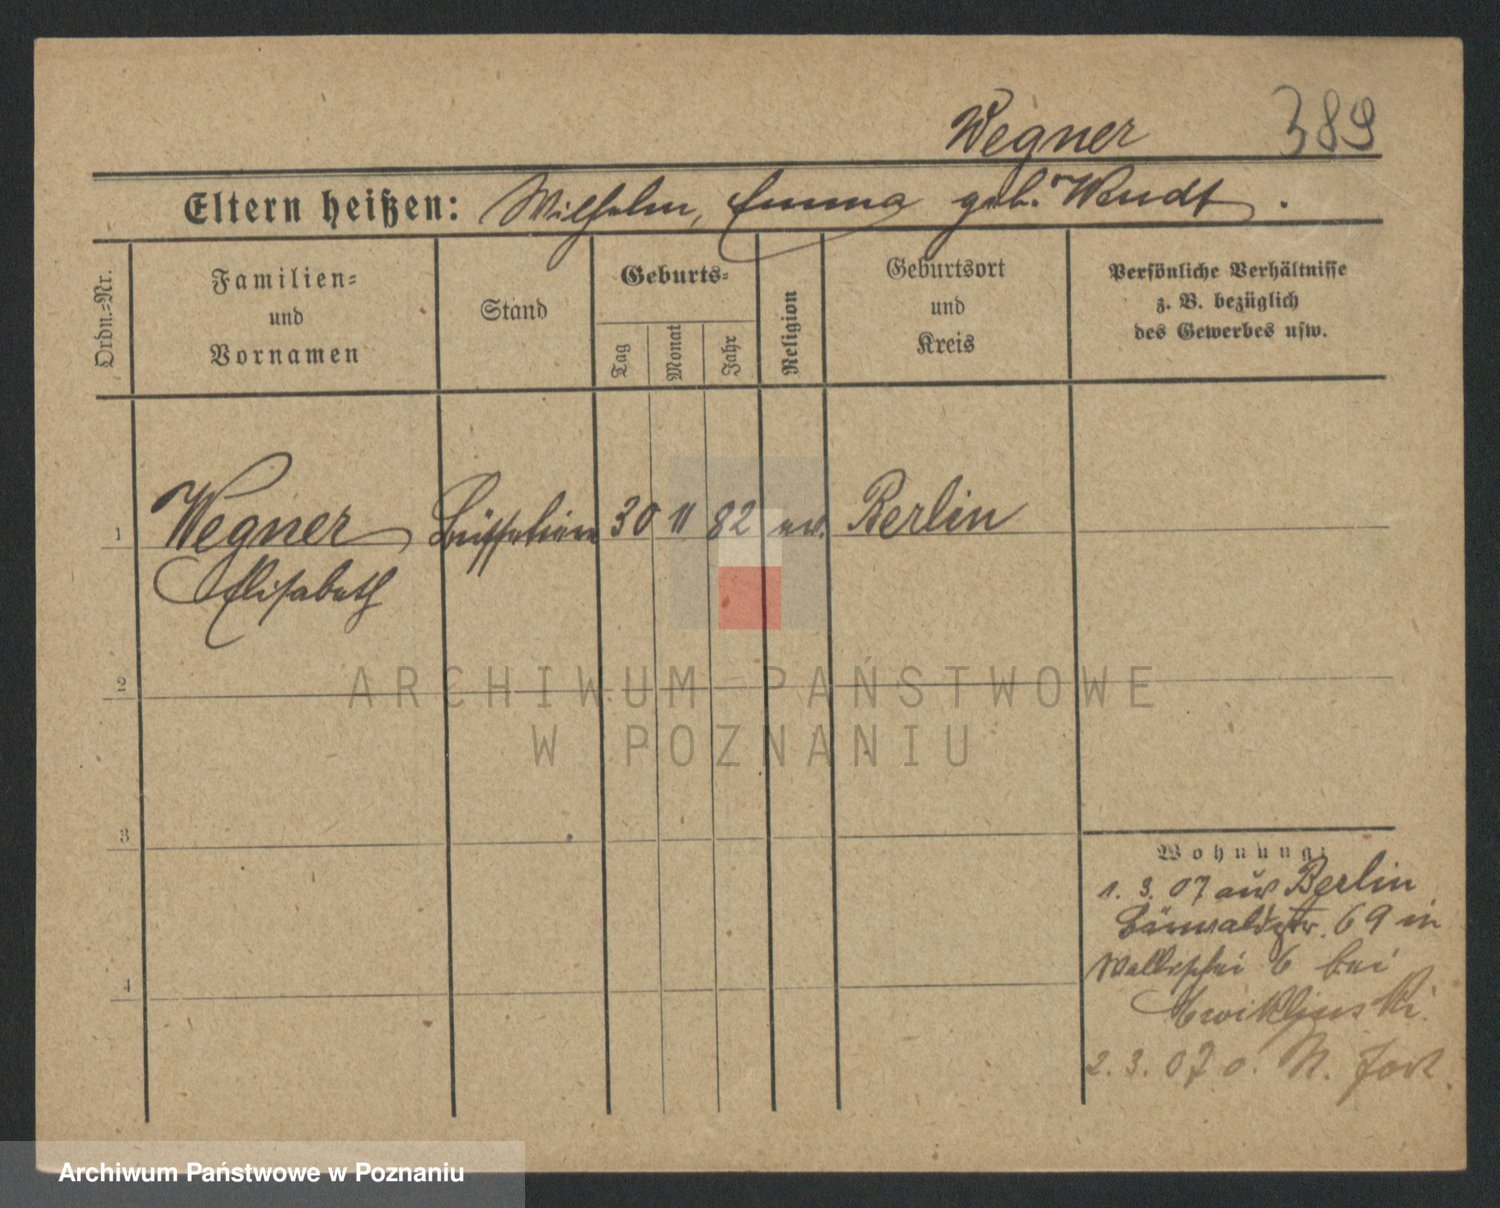 Wegner 389
Eltern heißen: Wilhelm, Emma geb. Wendt.
Ordn.-Nr.
Familien-
und
Vornamen
Stand
Geburts-
Tag
Monat
Jahr
Religion
Geburtsort
und
Kreis
Persönliche Verhältnisse
z. B. bezüglich
des Gewerbes usw.
1 Wegner 30 11 82 ev. Berlin
Elisabeth
2
ARCHIWUM PAŃSTWOWE
W POZNANIU
3
Wohnung:
1. 3. 07 aus Berlin
Bärwaldstr. 69 in
Wallischei 6 bei
2. 3. 07 o. N. fort.
4
Archiwum Państwowe w Poznaniu